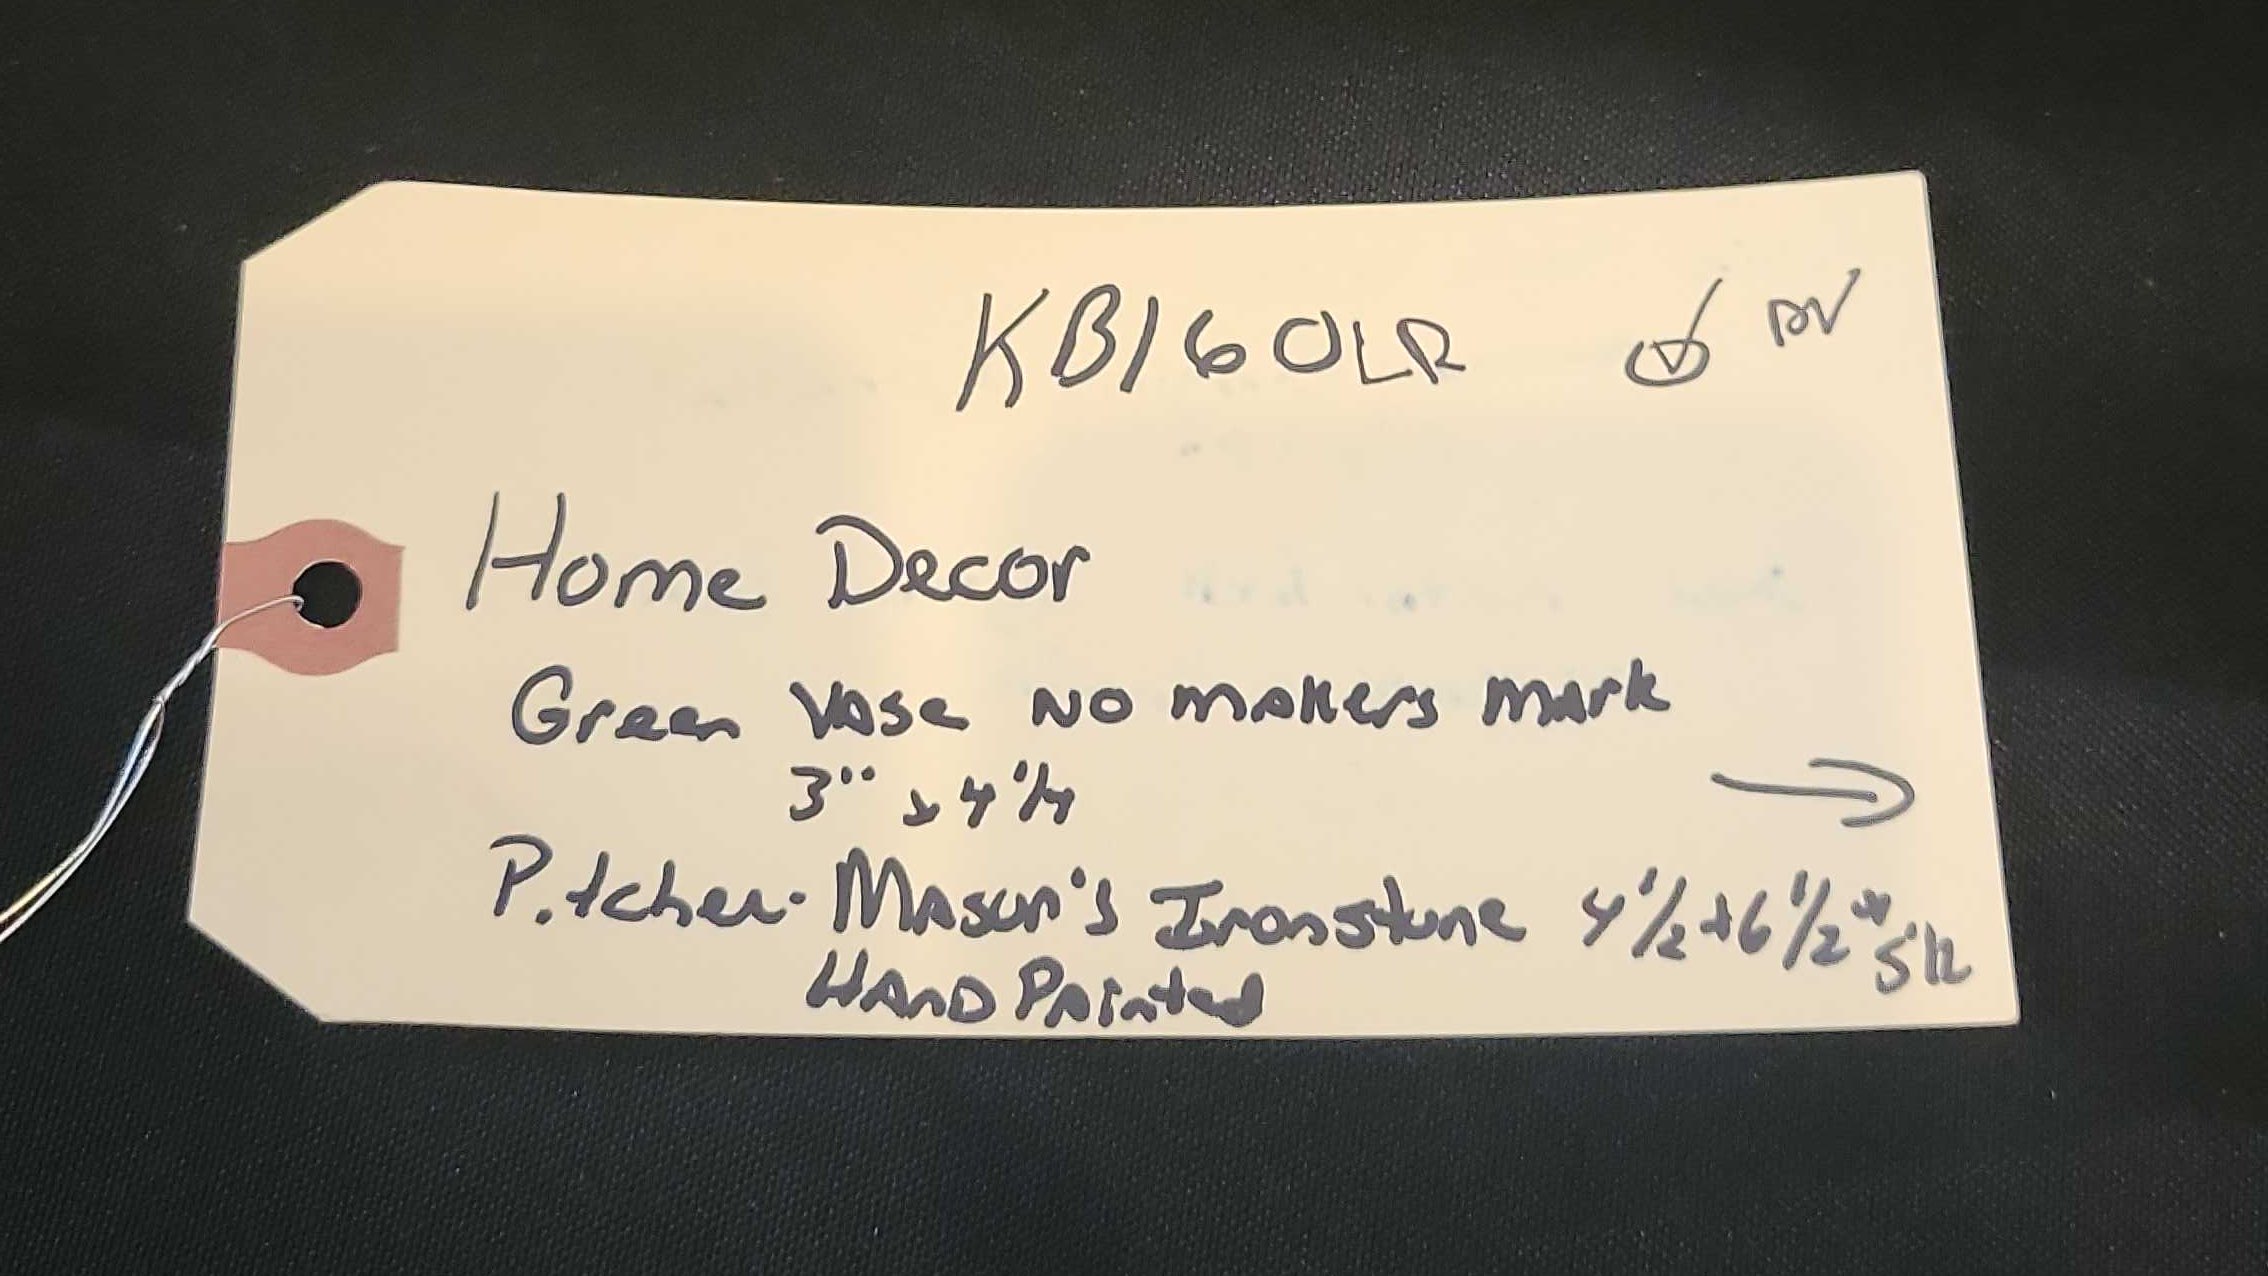 KB160LR
Home Decor
Green Vase No makers mark
3" x 4 1/4
Pitcher - Mason's Ironstone 4 1/2 x 6 1/2 x 5 1/2
Hand Painted